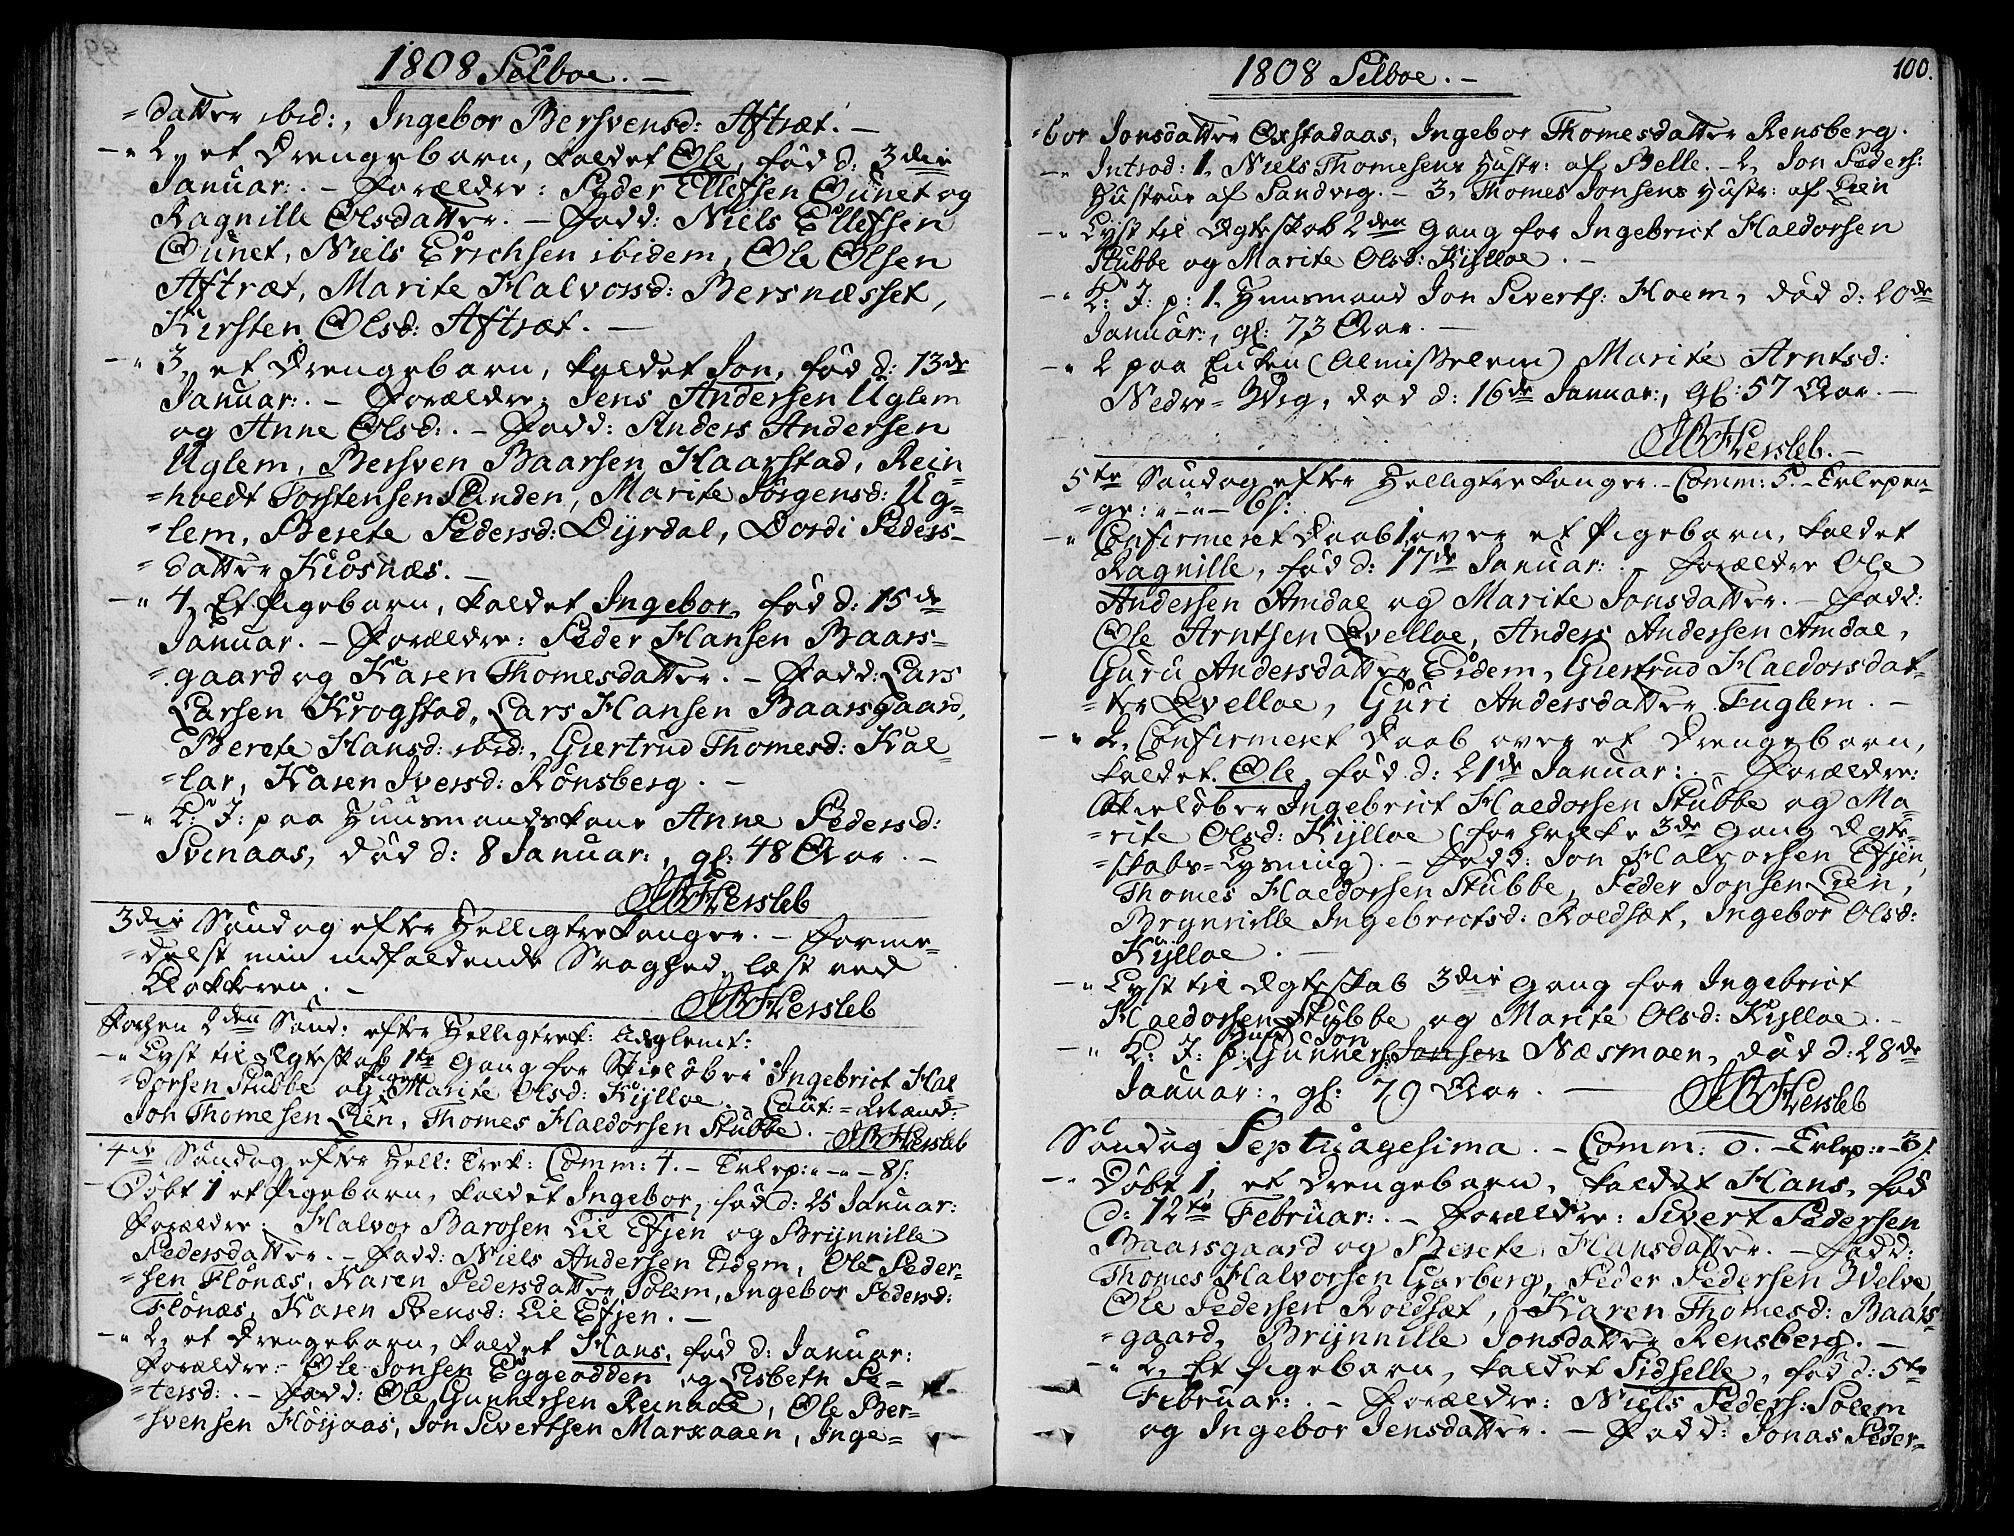 1808 Selboe. –
=datter ibid:, Ingebor Bersvensd: Aftræt. –
–" 2, et Drengebarn, kaldet Ole, fød d: 3die
Januar:. – Forældre: Peder Ellefsen Ounet og
Ragnille Olsdatter. – Fadd: Niels Ellefsen
Ounet, Niels Erichsen ibidem, Ole Olsen
Aftræt, Marite Halvorsd: Bersnæsset,
Kirsten Olsd: Aftræt. –
–" 3, et Drengebarn, kaldet Jon, fød d: 13de
Januar:. – Forældre: Jens Andersen Uglem
og Anne Olsd:. – Fadd: Anders Andersen
Uglem, Bersven Baarsen Haarstad, Rein=
=holdt Torstensen Sanden, Marite Jørgensd: Ug=
=lem, Berete Pedersd: Dyrdal, Dordi Peders=
=datter Kiøsnæs. –
–" 4, Et Pigebarn, kaldet Ingebor, fød d: 15de
Januar. – Forældre: Peder Hansen Baars=
=gaard og Karen Thomesdatter. – Fadd: Lars
Larsen Krogstad, Lars Hansen Baarsgaard,
Berete Hansd: ibid:, Giertrud Thomesd: Kal=
=lar, Karen Iversd: Rønsberg. –
–" K: J: paa Huusmandskone Anne Pedersd:
Svinaas, død d: 8 Januar:, gl: 48 Aar. –
Hersleb
3die Søndag efter Hellig tre Konger. – Forme=
=delst min indfaldende Svaghed, læst ved
Klokkeren. –
Hersleb
Forhen 2den Sønd: efter Helligtrek: udglemt:
–" Lyst til Ægteskab 1te Gang for Skieløber Ingebrict Hal=
=dorsen Stubbe og Pigen Marite Olsd: Kylloe. – Caut:
Jon Thomesen Lien, Thomes Haldorsen Stubbe. – Hersleb
4de Søndag efter Hell: Trek: Comm: 4. – Erlep: – " – 8s:
– Døbt 1 et Pigebarn, kaldet Ingebor, fød d: 25 Januar:
Forældre: Halvor Barosen Lil Efjen og Brynnille
Pedersdatter. – Fadd: Niels Andersen Eidem, Ole Peder=
=sen Flønæs, Karen Pedersdatter Solem, Ingebor Pedersd:
Flønæs, Karen Svensd: Lil Efjen. –
–" 2, et Drengebarn, kaldet Hans, fød d: Januar:
Forældre: Ole Jonsen Eggeodden og Lisbeth Pe=
=tersd:. – Fadd: Ole Gunnersen Renaae, Ole Ber=
=svensen Høiyaas, Jon Sivertsen Marxaaen, Inge=
1808 Selboe. –
100.
=bor Jonsdatter Oxstadaas, Ingebor Thomesdatter Rensberg.
–" Introd: 1, Niels Thomesens Hustr: af Belle. – 2, Jon Peders:
Hustrue af Sandvig. – 3, Thomes Jonsens Hustr: af Lien
–" Lyst til Ægteskab 2den Gang for Ingebrict Haldorsen
Stubbe og Marite Olsd: Kylloe. –
–" K: J: p: 1, Huusmand Jon Siverts: Hoem, død d: 20de
Januar:, gl: 73 Aar. –
–" 2 paa Enken (Almisselem) Marite Arntsd:
Nedre=Wig, død d: 16de Januar:, gl: 57 Aar. –
Hersleb. –
5te Søndag efter Hellig tre Konger. – Comm: 5. – Erlepen=
=ge: " – " – 6s:
–" Confirmeret Daab 1, over et Pigebarn, kaldet
Ragnille, fød d: 17de Januar:. – Forældre Ole
Andersen Amdal og Marite Jonsdatter. – Fadd:
Ole Arntsen Evelloe, Anders Andersen Amdal,
Guru Andersdatter Eidem, Giertrud Haldorsdat=
=ter Evelloe, Guri Andersdatter Fuglem. –
–" 2, Confirmeret Daab over et Drengebarn,
kaldet Ole, fød d: 21de Januar:. – Forældre:
Skieløber Ingebrict Haldorsen Stubbe og Ma=
=rite Olsd: Kylloe (for hvilke 3de Gang Ægte=
=skabs=Lysning). – Fadd: Jon Halvorsen Efjen,
Thomes Haldorsen Stubbe, Peder Jonsen Lien,
Brynnille Ingebrictsd: Roldsæt, Ingebor Olsd:
Kylloe. –
–" Lyst til Ægteskab 3die Gang for Ingebrict
Haldorsen Stubbe og Marite Olsd: Kylloe. –
–" K: J: p: Jon Gunners: Jonsen Næsmoen, død d: 28de
Januar:, gl: 79 Aar. –
Hersleb
Søndag Septuagesima. – Comm: 0. – Erlep: " – 3s:
–" Døbt 1, et Drengebarn, kaldet Hans, fød
d: 12te Februar:. – Forældre: Sivert Pedersen
Baarsgaard og Berete Hansdatter. – Fadd:
Thomes Halvorsen Garberg, Peder Pedersen Welve,
Ole Pedersen Roldsæt, Karen Thomesd: Baars=
=gaard, Brynnille Jonsdatter Rensberg. –
–" 2, Et Pigebarn, kaldet Sidselle, fød d: 5te
Februar:. – Forældre: Niels Peders: Solem
og Ingebor Jensdatter. – Fadd: Jonas Peder=